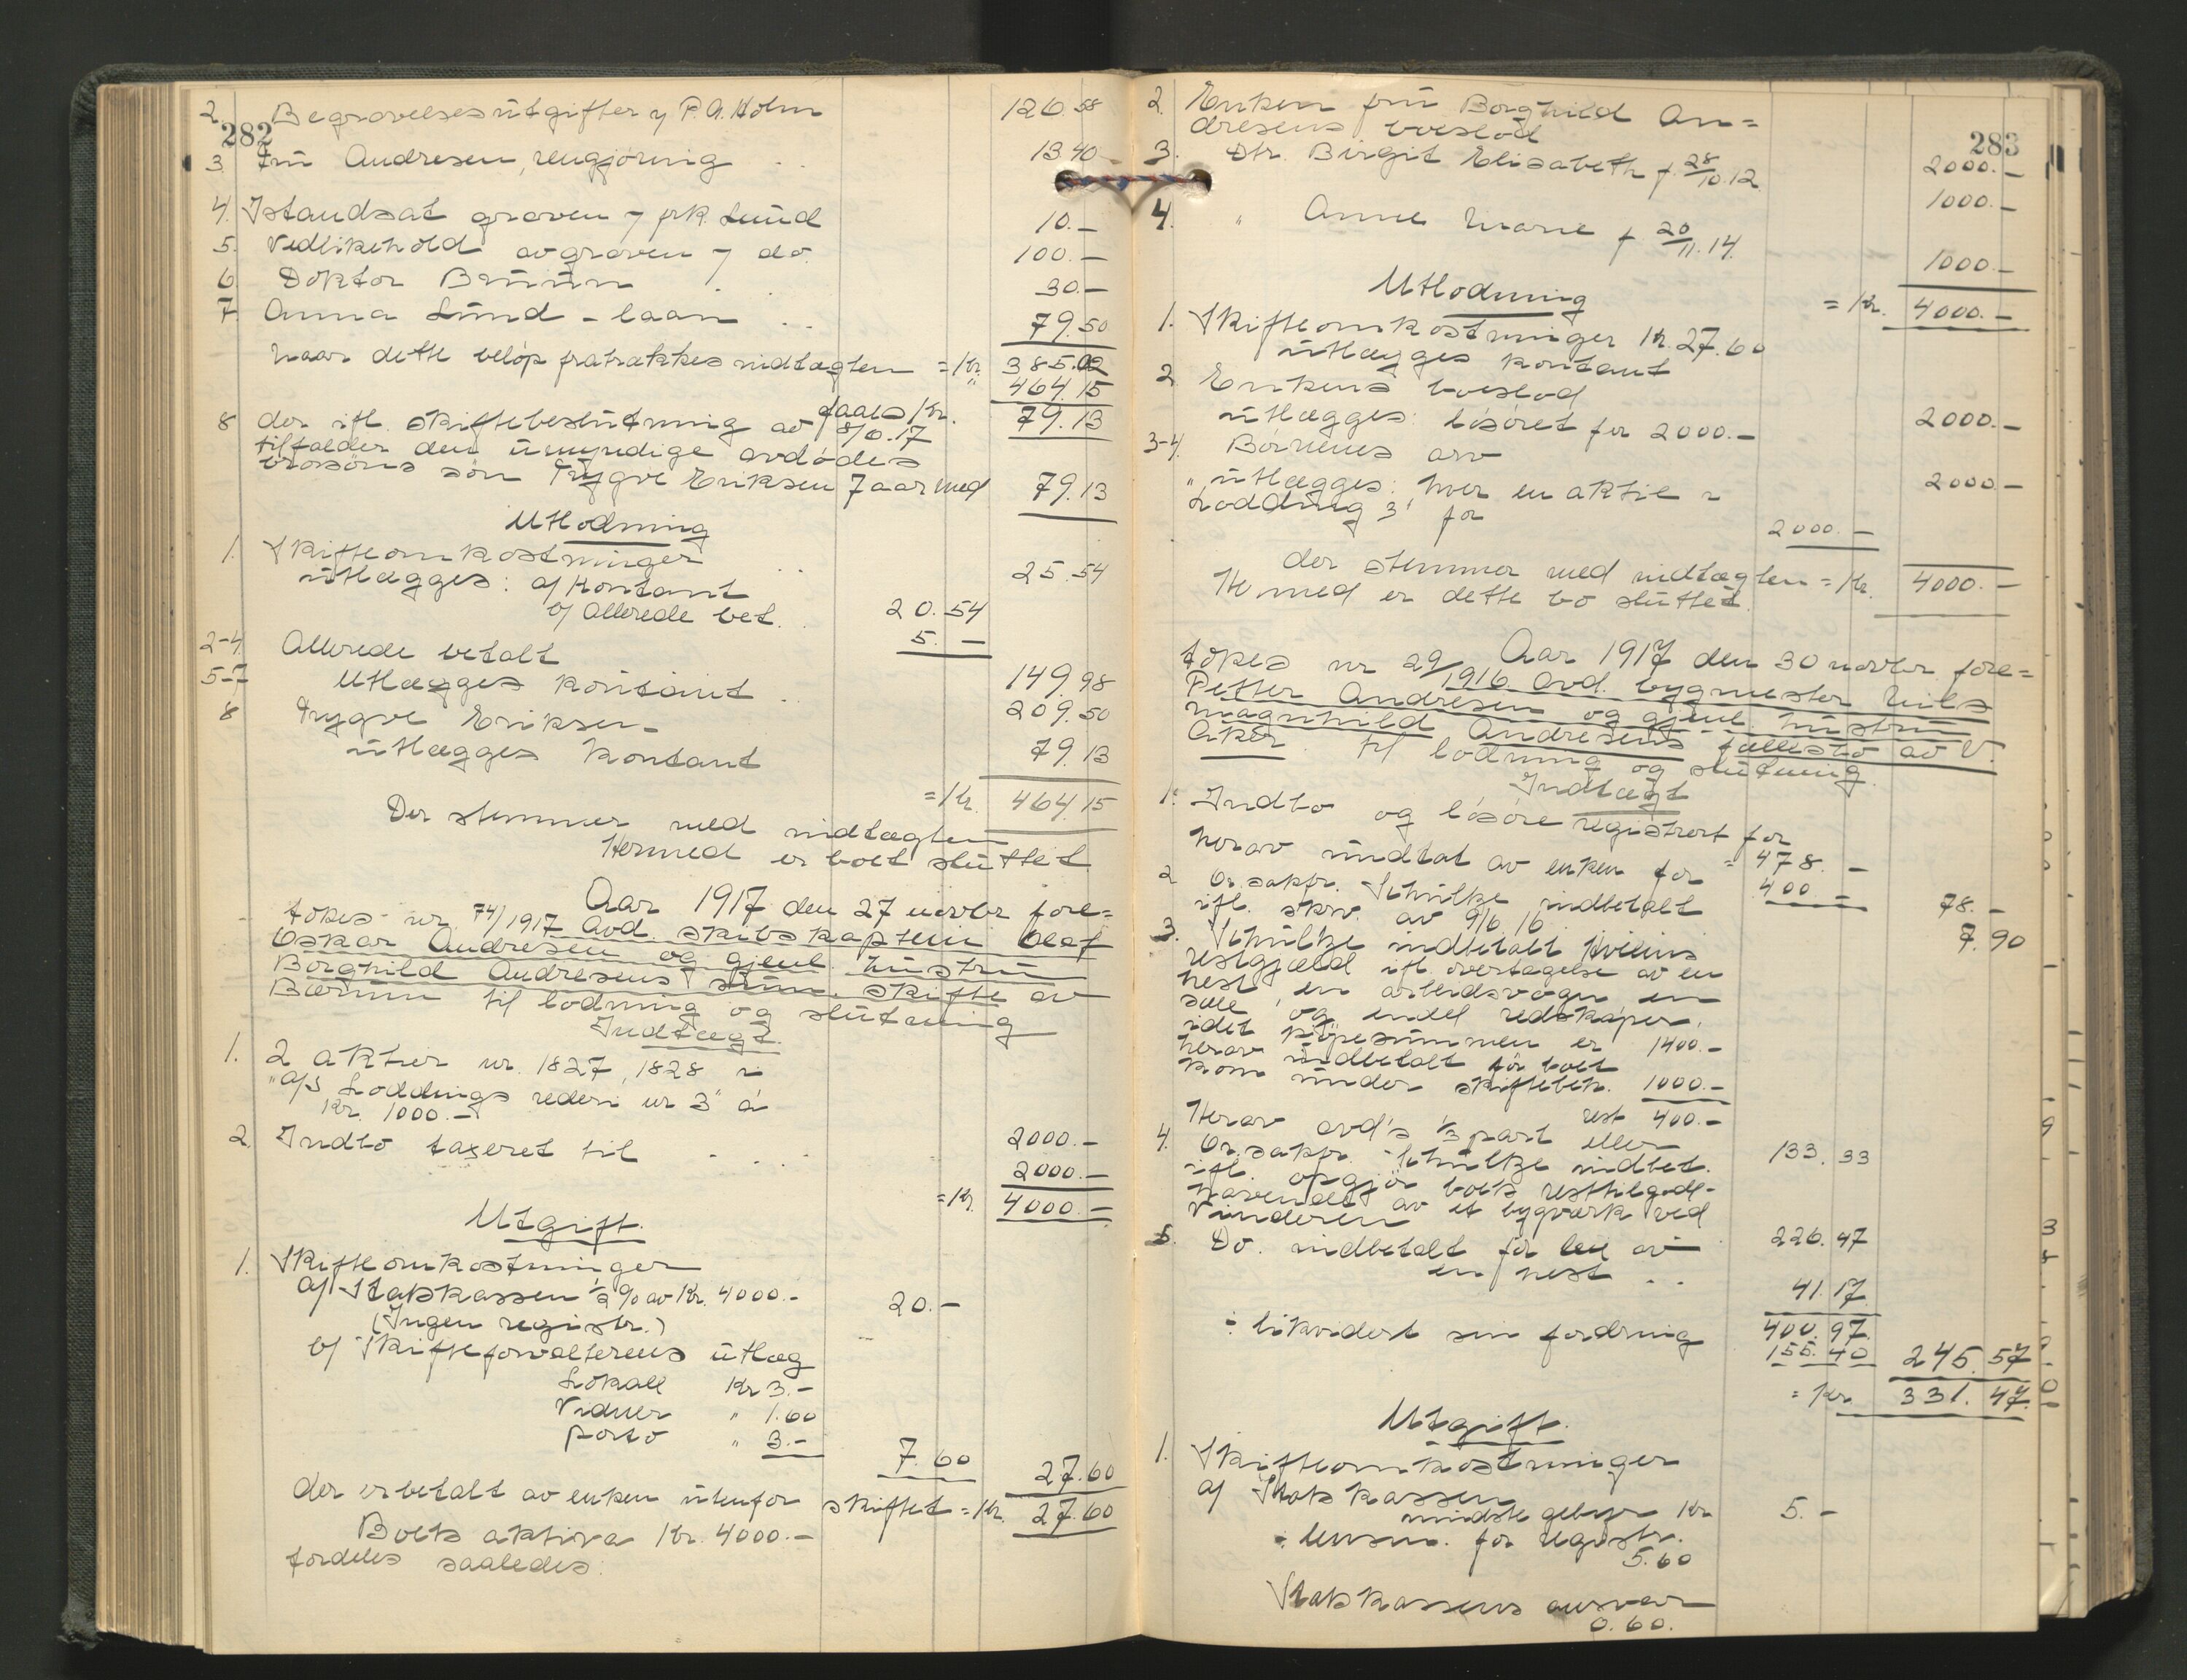 282
2. Begravelsesutgifter v/ P. A. Holm 126.58
3 Fru Andresen, rengjøring . . 13 40
4. Istandsat graven v/ prk. Lund 10.—
5. Vedlikehold av graven v/ do. 100.—
6 Doktor Bruun . . 30.—
7 Anna Lund - laan . . 79.50
Naar dette beløp fratrækkes indtægten =Kr. 385.02
" 464.15
faaes Kr. 79.13
8 der ifl. skiftebeslutning av 8/6.17
tilfalder den umyndige avdødes
brorsøns søn Trygve Eriksen 7 aar med 79.13
Utlodning
1. Skifteomkostninger . . 25.54
utlægges: a/ Kontant 20.54
b/ allerede bet. 5.—
2-4 Allerede betalt 149.98
5-7 Utlægges kontant . 209.50
8 Trygve Eriksen -
utlægges kontant 79.13
=Kr. 464.15
Der stemmer med indtægten
Hermed er boet sluttet
Aar 1917 den 27 novbr. fore=
tokes nr 74/1917 Avd. skibskaptein Olaf
Oskar Andresen og gjenl. hustru
Borghild Andresens sum. skifte av
Bærum til lodning og slutning
Indtægt.
1. 2 aktier nr. 1827, 1828 i
"A/S Loddings rederi nr 3" á
Kr. 1000.— 2000.—
2. Indbo taxeret til . . . . 2000.—
=Kr. 4000.—
Utgift.
1. Skifteomkostninger
a/ Statskassen ½ % av Kr. 4000.- 20.—
(Ingen registr.)
b/ Skifteforvalterens utlæg
Lokale Kr 3.—
Vidner " 1.60
Porto " 3.— 7.60 27.60
der er betalt av enken utenfor skiftet =Kr. 27.60
Boets aktiva Kr. 4000.—
fordeles saaledes:
283
2 Enken fru Borghild An=
dresens boeslod 2000.—
3. Dtr. Birgit Elisabeth f. 28/10.12 1000.—
4. " Anne Marie f 20/11.14. 1000.—
=Kr. 4000.—
Utlodning
1. Skifteomkostninger Kr. 27.60
utlægges kontant
2 Enkens boeslod 2000.—
utlægges: løsøret for 2000.—
3-4. Børnenes arv 2000.—
utlægges: hver en aktie i
"Lodding 3" for 2000.—
der stemmer med indtægten =Kr. 4000.—
Hermed er dette bo sluttet.
Aar 1917 den 30 novbr. fore=
tokes nr 29/1916 Avd. bygmester Nils
Petter Andresen og gjenl. hustru
Magnhild Andresens fællesbo av V.
Aker til lodning og slutning
Indtægt
1. Indbo og løsøre registrert for = 478.—
herav undtat av enken for 400.— 78.—
2 Or.sakfr. Schultze indbetalt
ifl. skriv. av 9/6 16 7.90
3. Schultze indbetalt Hviliens
restgjæld ifl. overtagelse av en
hest, en arbeidsvogn en
sæle og endel redskaper,
idet kjøpesummen er 1400.—
herav indbetalt før boet
kom under skiftebeh. 1000.—
rest 400.—
Herav avd's ⅓ part eller 133.33
4. Or.sakfr. Schultze indbet.
ifl. opgjør boets resttilgode-
havende av et bygverk ved
Vinderen 226.47
5. Do. indbetalt for leie av
en hest . . 41.17
400.97
÷ likvidert sin fordring 155.40 245.57
=Kr. 331.47
Utgift.
1. Skifteomkostninger
a/ Statskassen
mindste gebyr Kr 5.—
÷ lensm. for registr.
5.60
Statskassens ansvar
0.60.